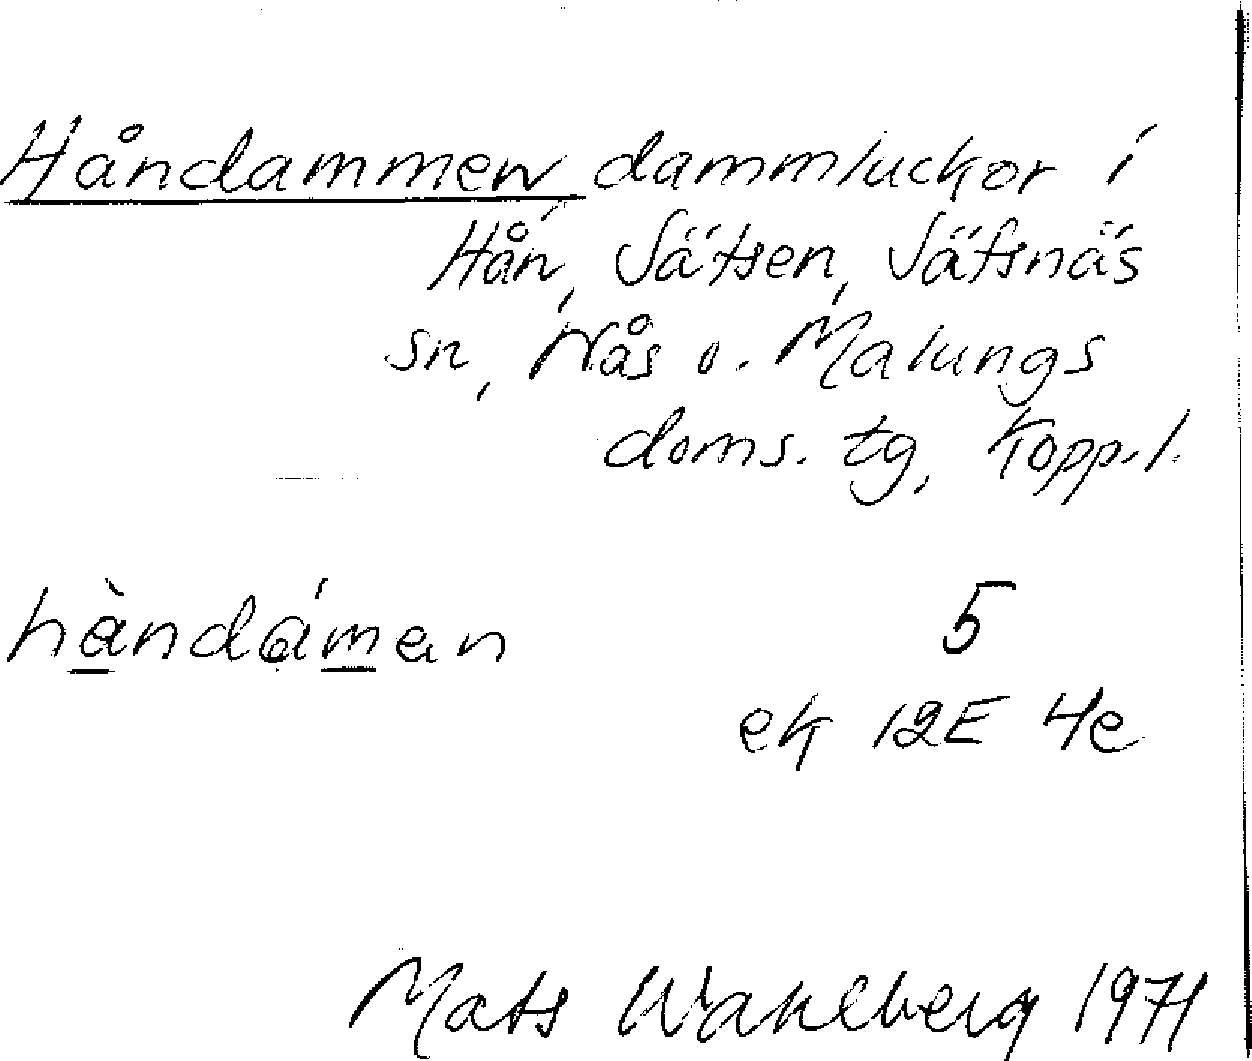 Håndammen, dammluckor i
Hån, Sätsen, Säfsnäs
sn, Nås o. Malungs
doms. tg, Kopp.l.
hàndámən 5
ek 12E 4e
Mats Wahlberg 1971